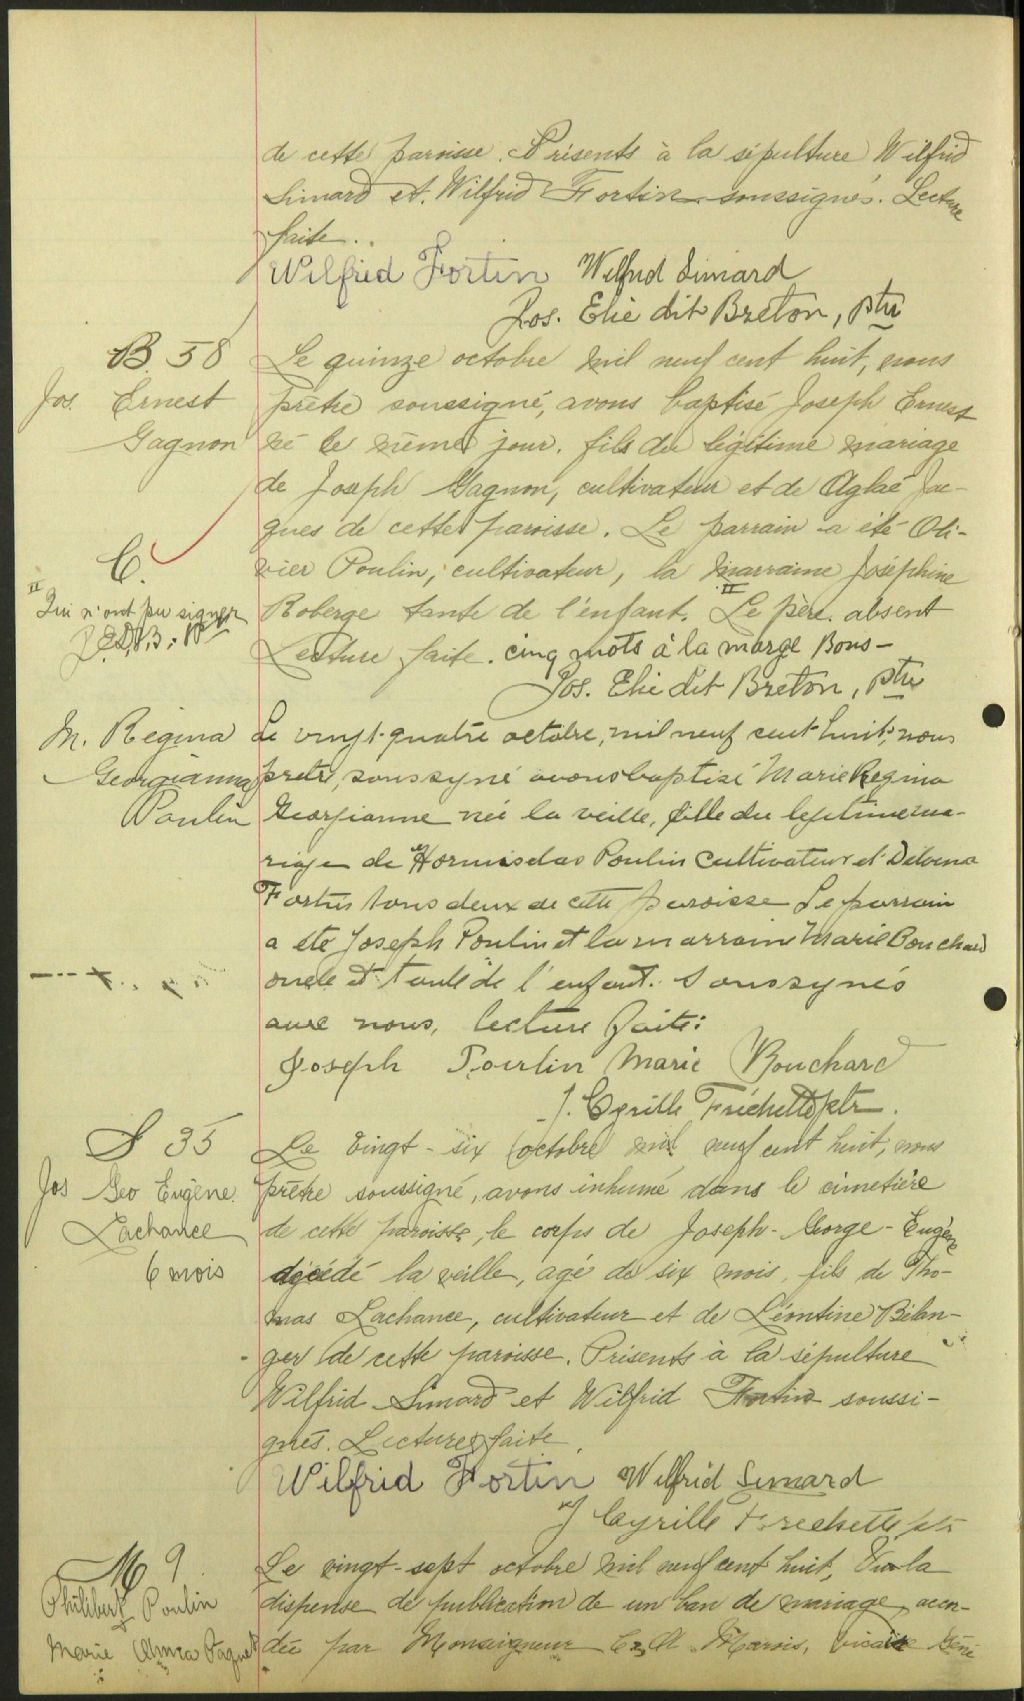 de cette paroisse. Présents à la sépulture Wilfrid
Simard et Wilfrid Fortin soussignés. Lecture
faite.
Wilfrid Fortin Wilfrid Simard
Jos. Elie dit Breton, ptre
B 58
Jos. Ernest
Gagnon
Le quinze octobre mil neuf cent huit, nous
prêtre soussigné, avons baptisé Joseph Ernest
né le même jour. fils du légitime mariage
de Joseph Gagnon, cultivateur et de Aglaé Jac-
ques de cette paroisse. Le parrain a été Oli-
vier Poulin, cultivateur, la marraine Joséphine
Roberge tante de l'enfant. II Le père absent
Lecture faite. cinq mots à la marge Bons-
Jos. Elie dit Breton, ptre
C.
II
Qui n'ont pu signer
J.E.D.B. Ptre
M. Régina
Georgianna
Poulin
Le vingt-quatre octobre, mil neuf cent huit, nous
pretre, soussyné avons baptisé Marie Regina
Georgianne née la veille, fille du legitime ma-
riage de Hormisdas Poulin Cultivateur et Delvina
Fortin tous deux de cette paroisse Le parrain
a ete Joseph Poulin et la marraine Marie Bouchard
oncle et tante de l'enfant. Soussynés
avec nous, lecture faite:
Joseph Poulin Marie Bouchard
J. Cyrille Fréchette ptr.
S 35
Jos Geo Eugène
Lachance
6 mois
Le vingt-six octobre mil neuf cent huit, nous
prêtre soussigné, avons inhumé dans le cimetière
de cette paroisse, le corps de Joseph-George-Eugène
décédé la veille, agé de six mois, fils de Tho-
mas Lachance, cultivateur et de Léontine Bélan-
ger de cette paroisse. Présents à la sépulture
Wilfrid Simard et Wilfrid Fortin soussi-
gnés. Lecture faite.
Wilfrid Fortin Wilfrid Simard
J Cyrille Frechette ptr
M 9
Philibert Poulin
Marie Paquet
Le vingt-sept octobre mil neuf cent huit, Vu la
dispense de publication de un ban de mariage accor-
dée par Monseigneur C. A. Marois, vicaire Géné